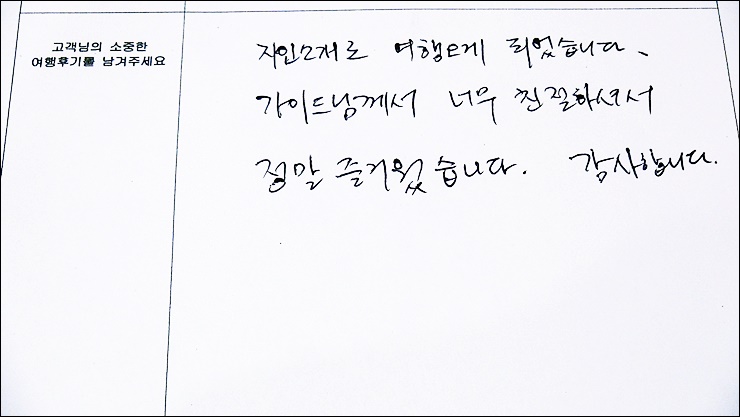 고객님의 소중한
여행후기를 남겨주세요
지인소개로 여행오게 되었습니다.
가이드님께서 너무 친절하셔서
정말 즐거웠습니다. 감사합니다.